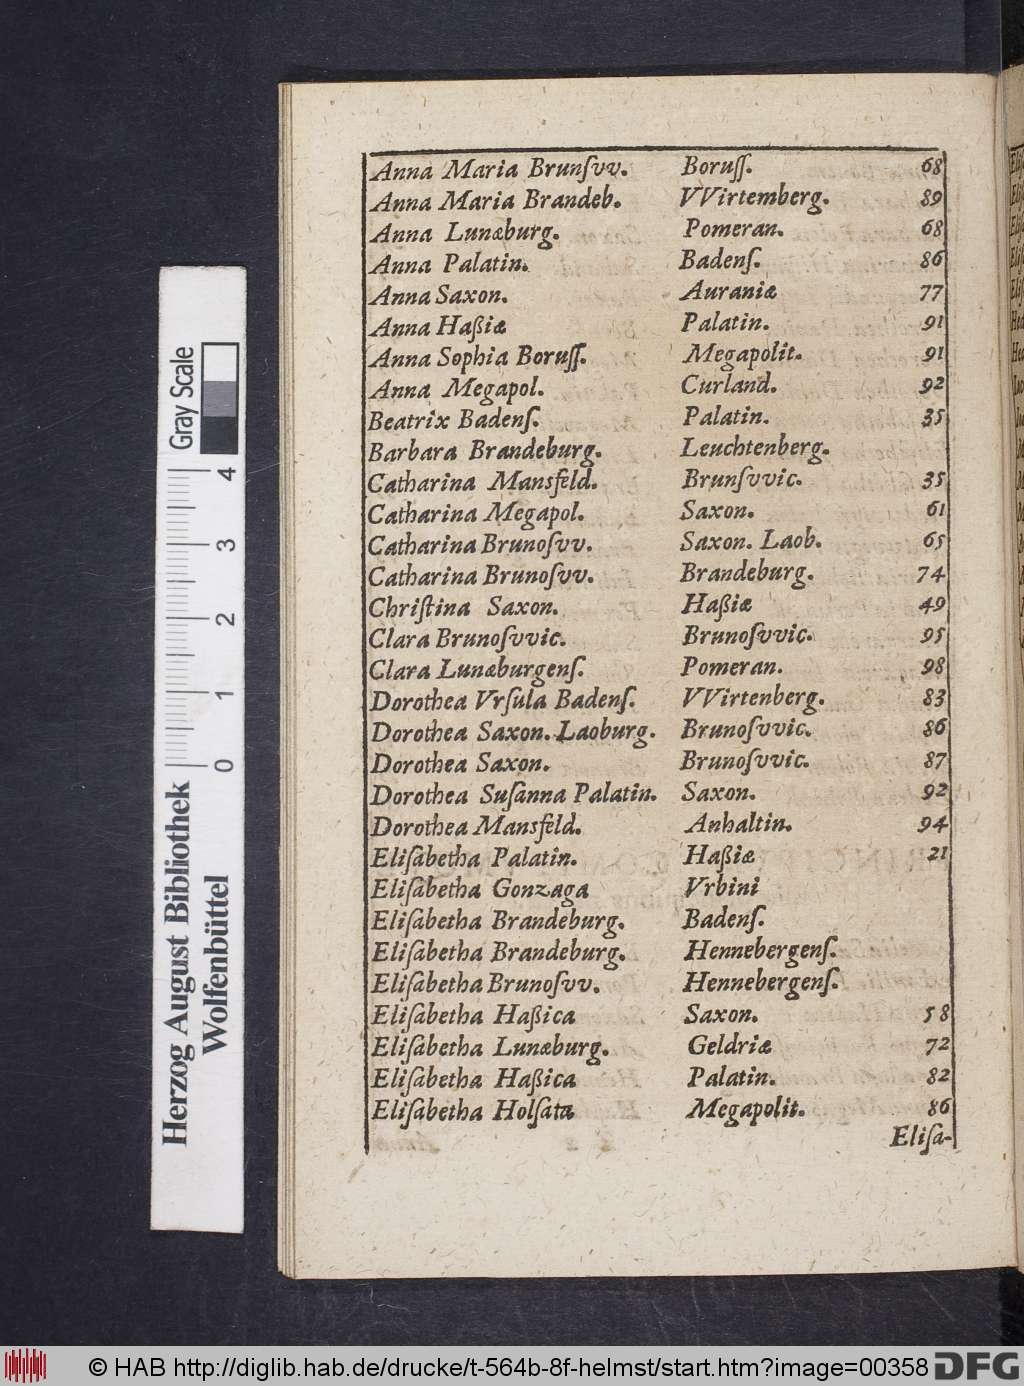 Anna Maria Brunſvv. Boruſſ. 68
Anna Maria Brandeb. VVirtemberg. 89
Anna Lunæburg. Pomeran. 68
Anna Palatin. Badenſ. 86
Anna Saxon. Auraniæ 77
Anna Haßiæ Palatin. 91
Anna Sophia Boruſſ. Megapolit. 91
Anna Megapol. Curland. 92
Beatrix Badenſ. Palatin. 35
Barbara Brandeburg. Leuchtenberg.
Catharina Mansfeld. Brunſvvic. 35
Catharina Megapol. Saxon. 61
Catharina Brunoſvv. Saxon. Laob. 65
Catharina Brunoſvv. Brandeburg. 74
Chriſtina Saxon. Haßiæ 49
Clara Brunoſvvic. Brunoſvvic. 95
Clara Lunæburgenſ. Pomeran. 98
Dorothea Vrſula Badenſ. VVirtenberg. 83
Dorothea Saxon. Laoburg. Brunoſvvic. 86
Dorothea Saxon. Brunoſvvic. 87
Dorothea Suſanna Palatin. Saxon. 92
Dorothea Mansfeld. Anhaltin. 94
Eliſabetha Palatin. Haßiæ 21
Eliſabetha Gonzaga Vrbini
Eliſabetha Brandeburg. Badenſ.
Eliſabetha Brandeburg. Hennebergenſ.
Eliſabetha Brunoſvv. Hennebergenſ.
Eliſabetha Haßica Saxon. 58
Eliſabetha Lunæburg. Geldriæ 72
Eliſabetha Haßica Palatin. 82
Eliſabetha Holſata Megapolit. 86
Eliſa-
Gray Scale
0 1 2 3 4
Herzog August Bibliothek
Wolfenbüttel
© HAB http://diglib.hab.de/drucke/t-564b-8f-helmst/start.htm?image=00358 DFG